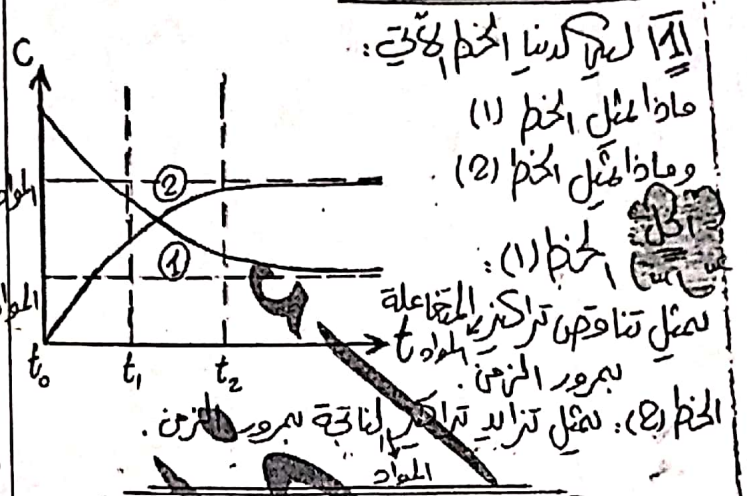 [1] ليكن لدينا الخط الآتي:
ماذا يمثل الخط (1)
وماذا يمثل الخط (2)
الحل
الخط (1):
يمثل تناقص تراكيز المواد المتفاعلة
بمرور الزمن.
الخط (2): يمثل تزايد تراكيز المواد الناتجة بمرور الزمن.
C
②
①
t₀
t₁
t₂
t